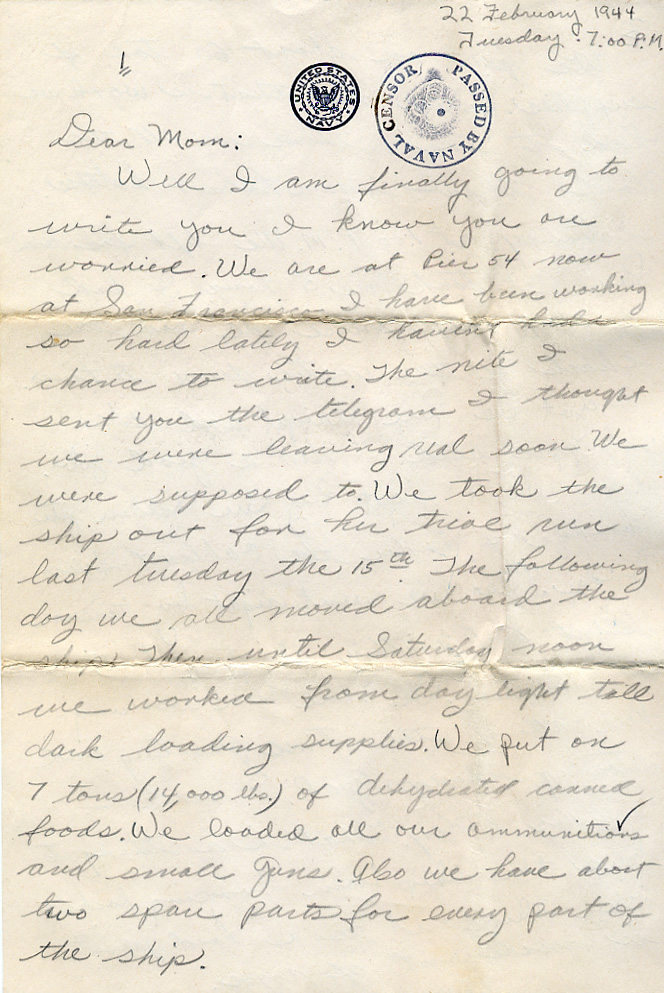 22 February 1944
Tuesday 7:00 P.M.
1
UNITED STATES NAVY
PASSED BY NAVAL CENSOR
Dear Mom:
Well I am finally going to
write you I know you are
worried. We are at Pier 54 now
at San Francisco I have been working
so hard lately I havent had a
chance to write. The nite I
sent you the telegram I thought
we were leaving real soon We
were supposed to. We took the
ship out for her trial run
last tuesday the 15th The following
day we all moved aboard the
ship. Then until Saturday noon
we worked from day light till
dark loading supplies. We put on
7 tons (14,000 lbs.) of dehydrated canned
foods. We loaded all our ammunitions
and small guns. Also we have about
two spare parts for every part of
the ship.